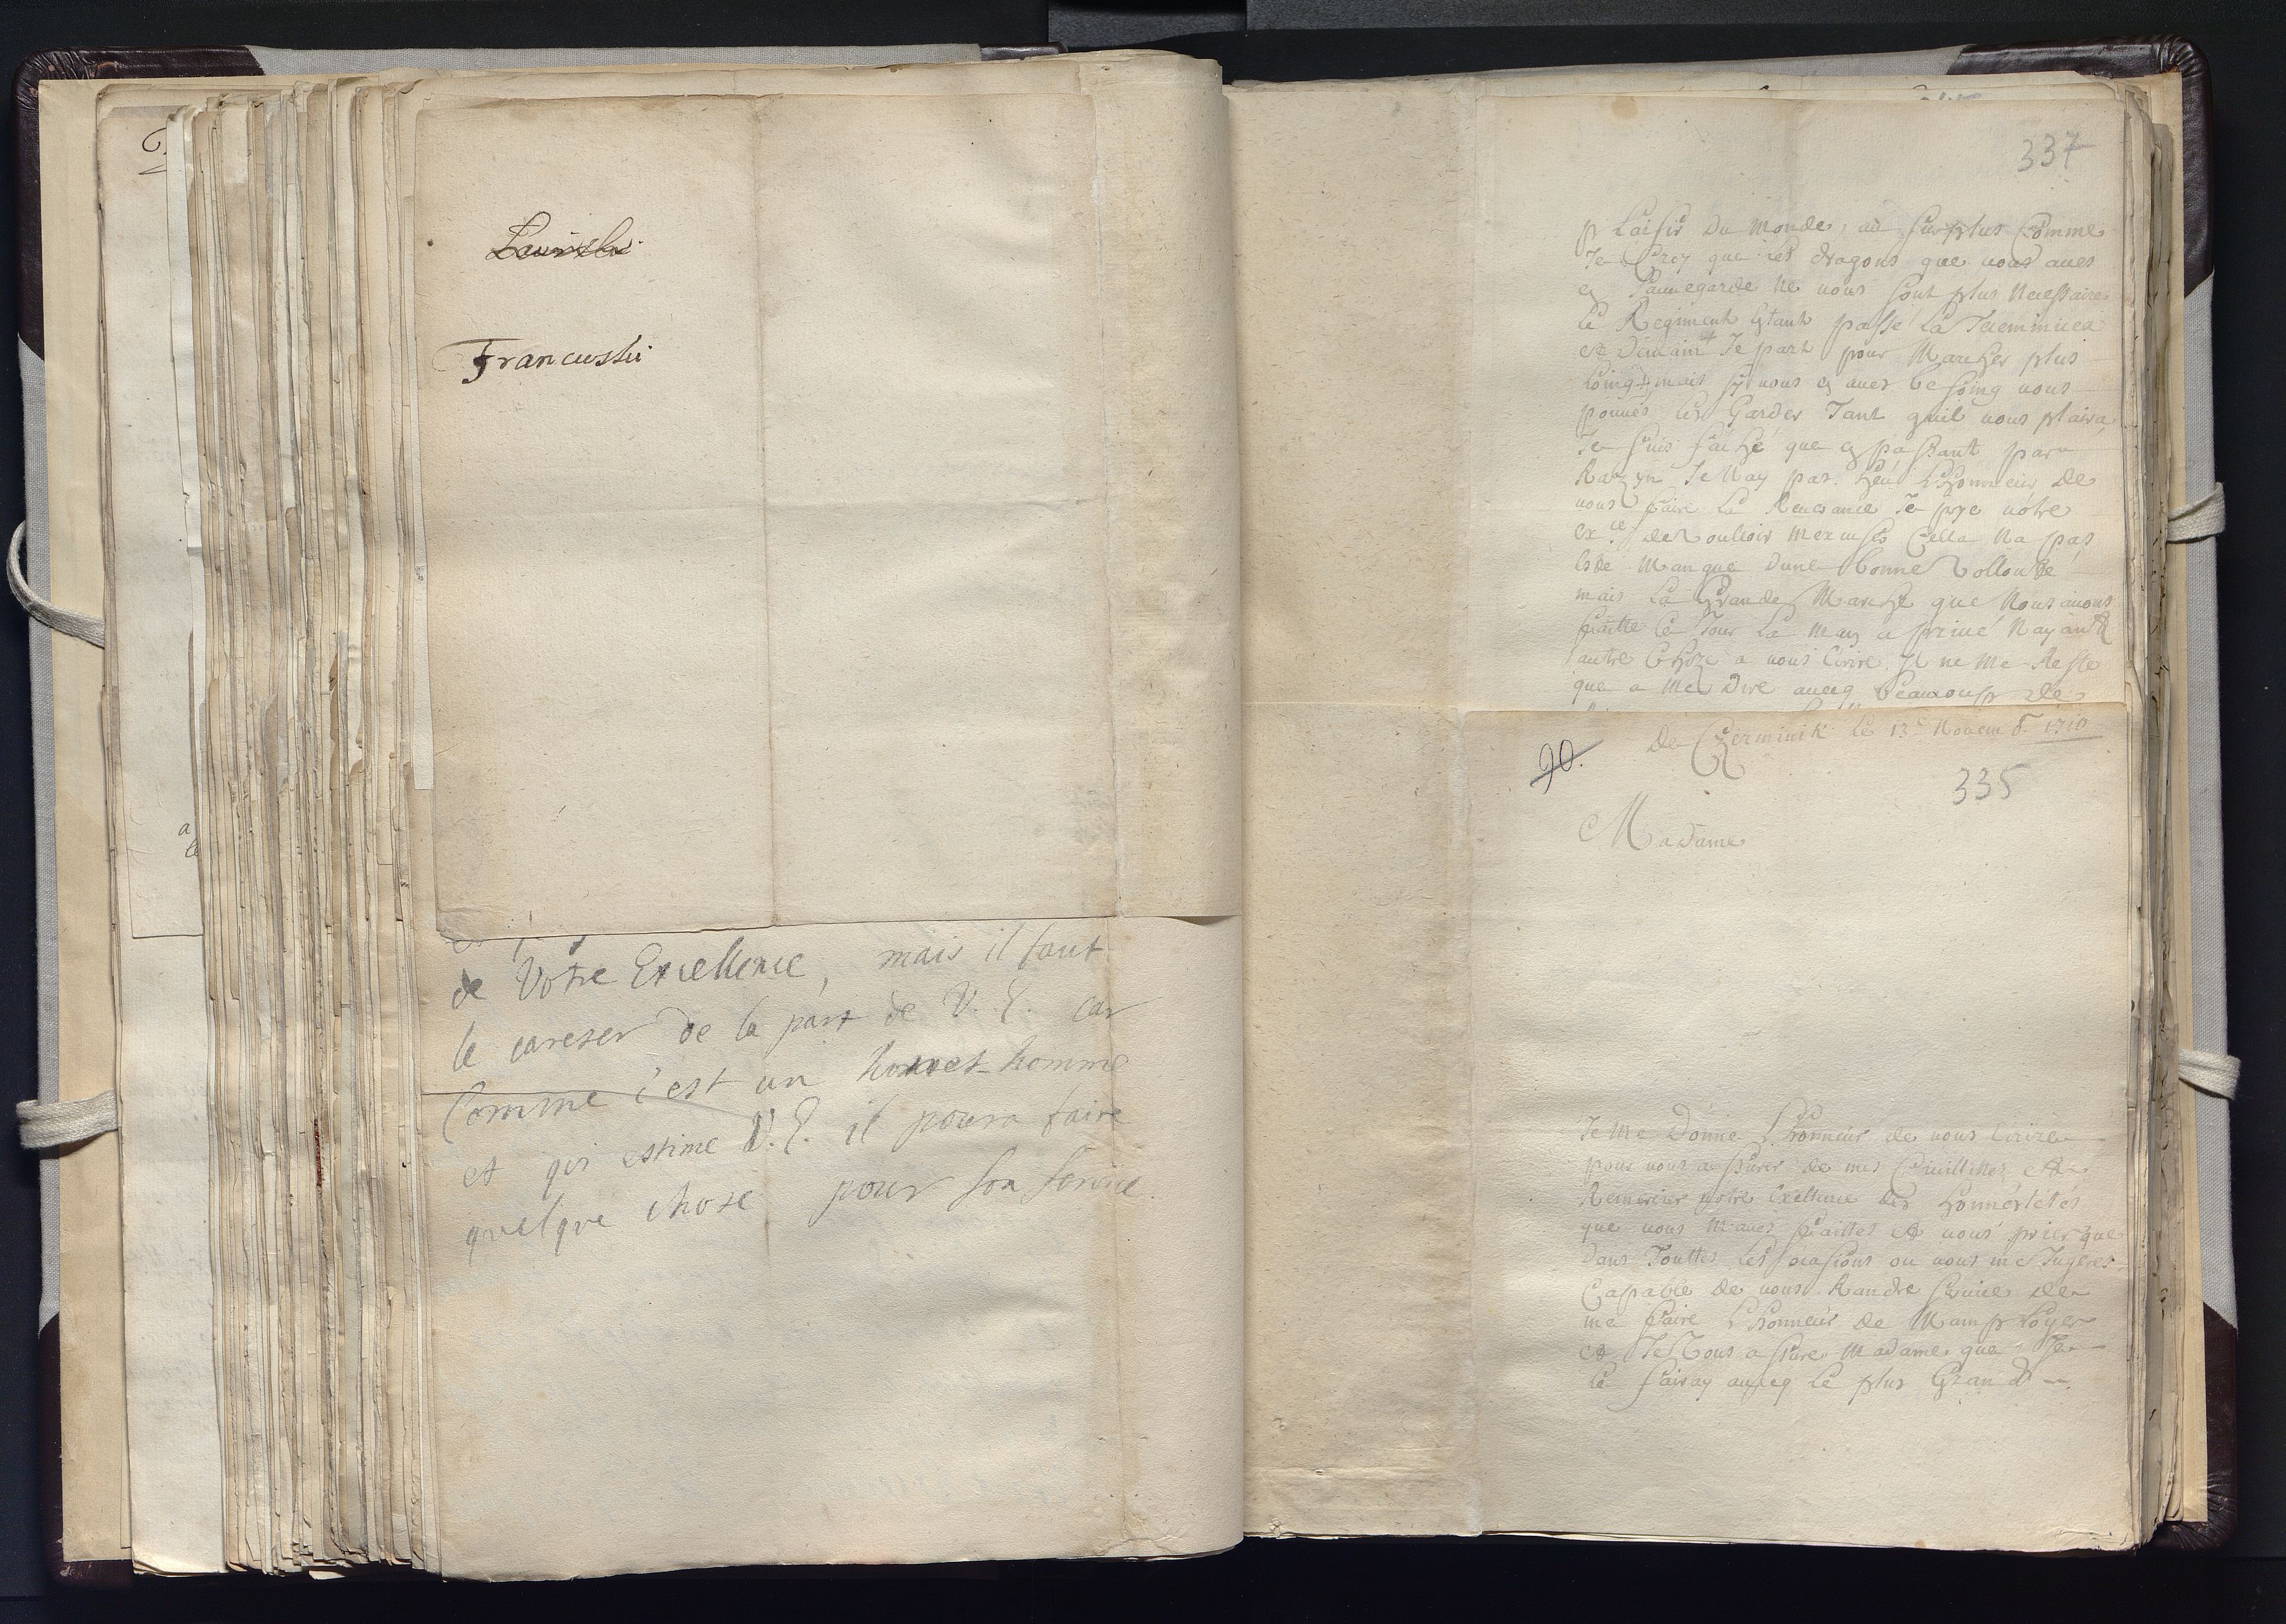 Francuski
de Votre Excellence, mais il faut
le careser de la part de V. E. car
Comme c'est un honnet homme
et qui estime V. E. il poura faire
quelque chose pour son service.
337
plaisir du monde, au surplus Comme
Je Croy que les dragons que vous aues
en Sauuegarde ne vous sont plus necessaire
le Regiment Etant passé la
et Demain Je part pour Marcher plus
Loing, mais sy vous en aues besoing vous
pouues les Garder Tant quil vous plaira
Je suis faché que en passant par
Je Nay pas heu Lhonneur de
vous faire la Reuerance Je prye votre
ex.ce de Voulloir mexcuser Cella Na pas
Esté Manque dune bonne Vollonté
mais la Grande Marche que Nous auons
faitte ce Jour La Men a priué Nayant
autre Choze a vous Ecrire Il ne Me Reste
que a Me Dire auecq beaucoup de
90.
De Czerminik le 13e Nouemb. 1710
335
Madame
Je Me Donne Lhonneur de vous Ecrire
pour vous assurer de mes Ciuillites et
Remercier votre Exellence des honnestetés
que vous Maues faittes et vous prier que
Dans Touttes Les ocasions ou vous me Jugeres
Capable de vous Randre seruice de
me faire Lhonneur de Mamployer
et Je Vous assure Madame que Je
le fairay auecq Le plus Grand